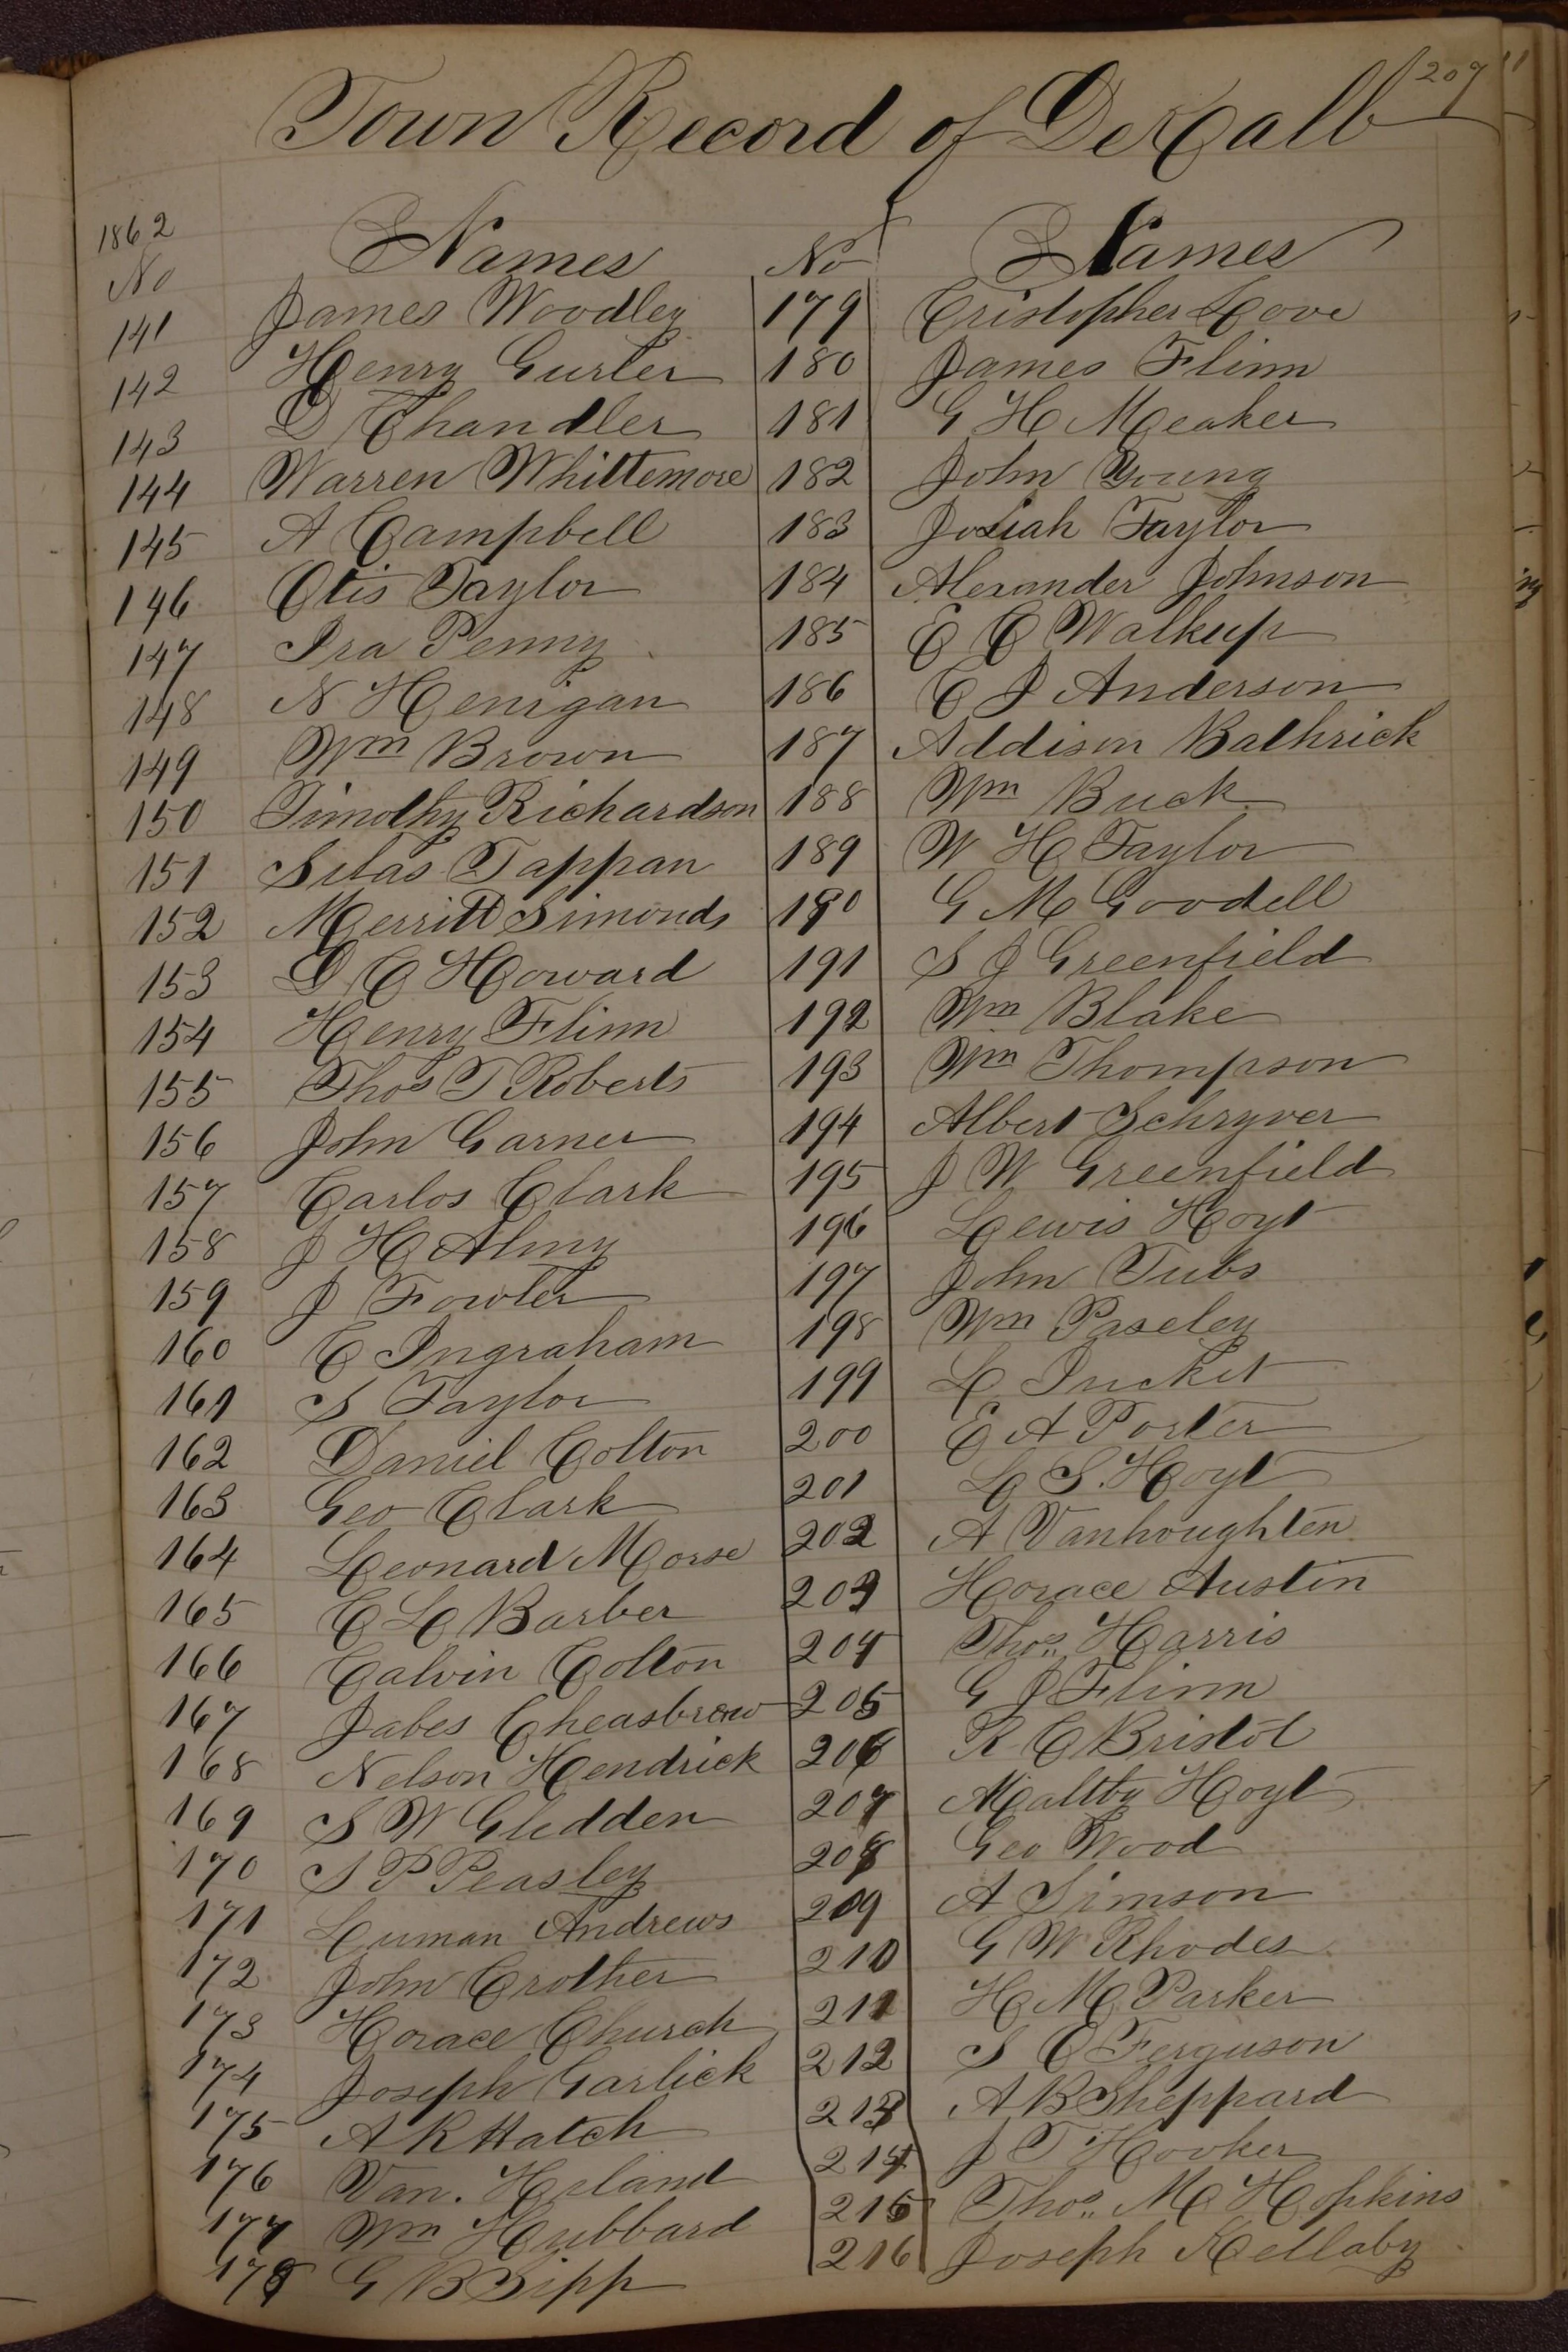 207
Town Record of DeKalb
1862
No Names No Names
141 James Woodley 179 Cristopher Love
142 Henry Gurler 180 James Flinn
143 D Chandler 181 G H Meaker
144 Warren Whittemore 182 John Young
145 A Campbell 183 Josiah Taylor
146 Otis Taylor 184 Alexander Johnson
147 Ira Penny 185 E C Walkup
148 N Henigan 186 C J Anderson
149 Wm Brown 187 Addison Bathrick
150 Timothy Richardson 188 Wm Buck
151 Silas Tappan 189 W H Taylor
152 Merritt Simonds 190 G M Goodell
153 D C Howard 191 S J Greenfield
154 Henry Flinn 192 Wm Blake
155 Thos T Roberts 193 Wm Thompson
156 John Garner 194 Albert Schryver
157 Carlos Clark 195 J W Greenfield
158 J H Almy 196 Lewis Hoyt
159 J Fowler 197 John Tubs
160 C Ingraham 198 Wm Paseley
161 S Taylor 199 L
162 Daniel Colton 200 E A Porter
163 Geo Clark 201 L S. Hoyt
164 Leonard Morse 202 A Vanhoughten
165 C L Barber 203 Horace Austin
166 Calvin Colton 204 Thos. Harris
167 Jabes Cheasbrew 205 G J Flinn
168 Nelson Hendrick 206 R C Bristol
169 S W Glidden 207 Maltby Hoyt
170 S P Peasley 208 Geo Wood
171 Luman Andrews 209 A Simson
172 John Crother 210 G W Rhodes
173 Horace Church 211 H M Parker
174 Joseph Garlick 212 S C Ferguson
175 A R Hatch 213 A B Sheppard
176 Van. Holand 214 J T Hooker
177 Wm Hubbard 215 Thos. Mc Hopkins
178 G B Sipp 216 Joseph Kellaby